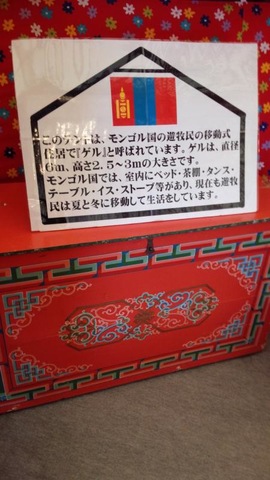 このテントは、モンゴル国の遊牧民の移動式
住居で『ゲル』と呼ばれています。ゲルは、直径
6m、高さ2.5〜3mの大きさです。
モンゴル国では、室内にベッド・茶棚・タンス・
テーブル・イス・ストーブ等があり、現在も遊牧
民は夏と冬に移動して生活をしています。